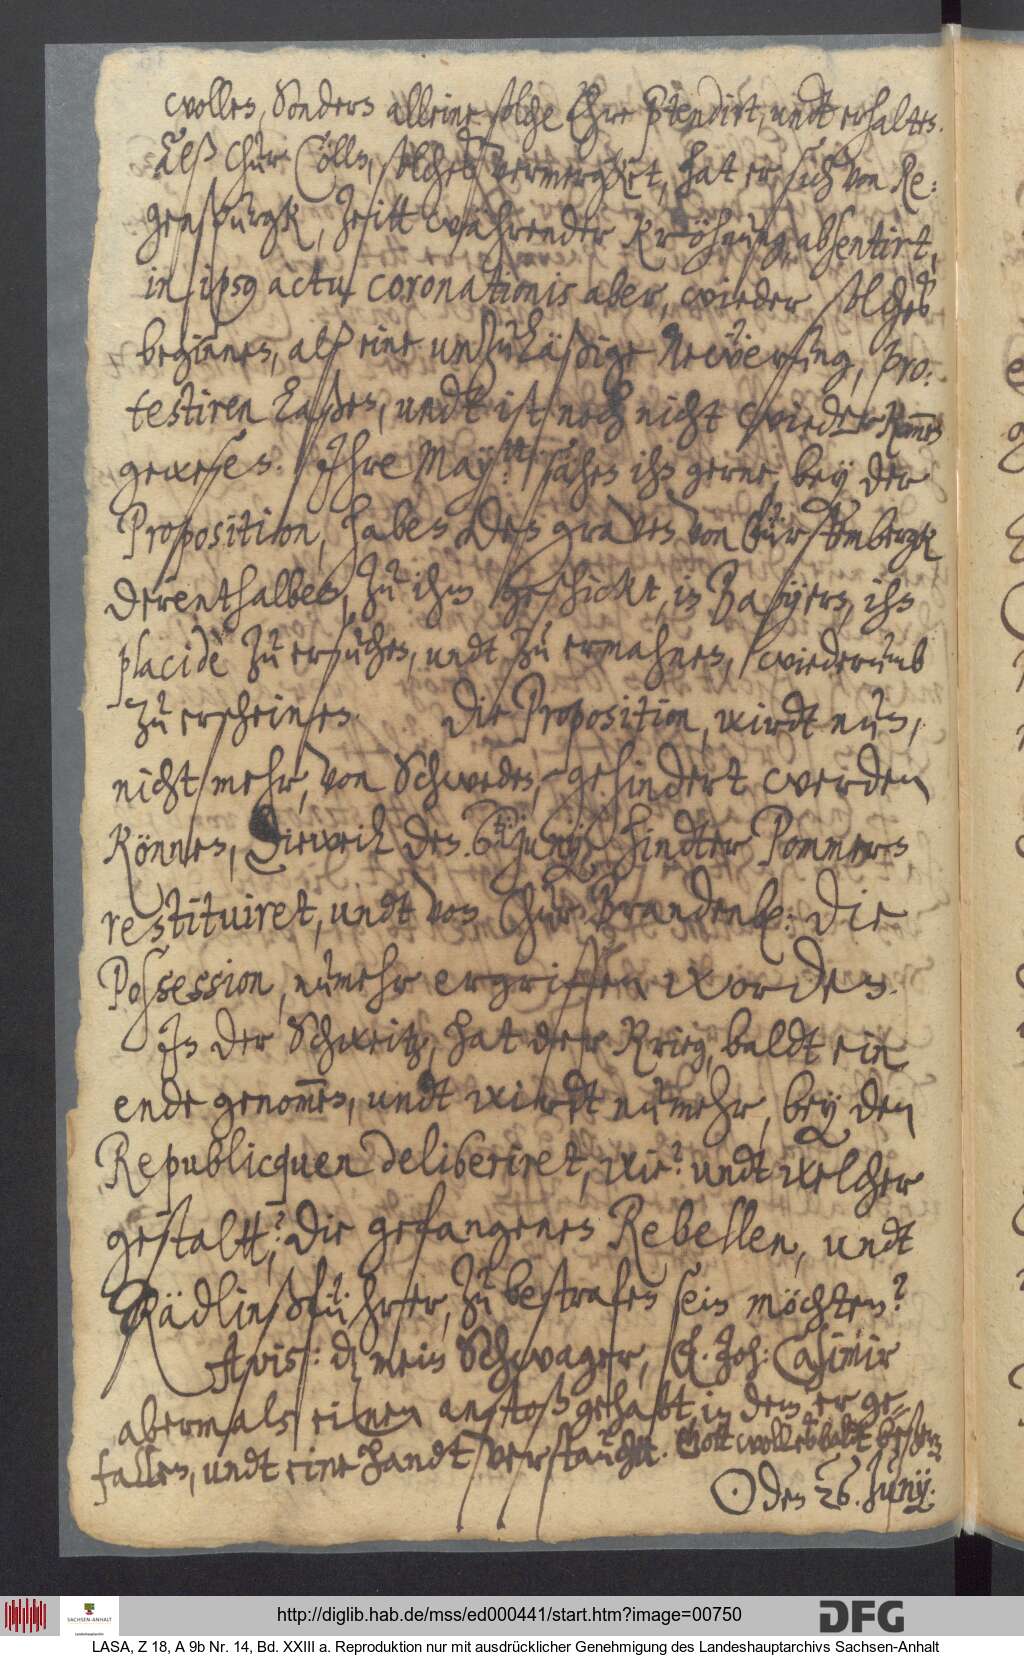 wollen, sondern alleine solche Ehre ptendirt, undt erhalten.
Alß Chur Cölln, solches vermergket, hat er sich von Re:
genspurgk, zeitt wáhrender Kröhnung, absentirt,
in ipso actu coronationis aber, wieder solches
beginnen, alß eine unzuläßige Neẅerung, pro:
testiren laßen, undt ist noch nicht wieder kommen
gewesen. Ihre May:tt: sähen ihn gerne, bey der
Proposition, haben den graven von Fürstembergk
derenthalben, zu ihm geschickt, in Bayern, ihn
placide zu ersuchen, undt zu ermahnen, wiederumb
zu erscheinen. Die Proposition, wirdt nun,
nicht mehr, von Schweden, gehindert werden
können, Dieweil den 6ten Junij, Hindter Pommern
restituiret, undt von Chur Brandenb: die
Possession, numehr ergriffen worden.
In der Schweitz, hat der Krieg, baldt ein
ende genommen, undt wirdt numehr, bey den
Republicquen deliberiret, wie? undt welcher
gestaltt? die gefangenen Rebellen, undt
Rädlinßführer, zu bestrafen sein möchten?
Avis: daß mein Schwager, F. Joh: Casimir
abermals einen anstoß gehabt, in dem er ge¬
fallen, undt eine handt verstaucht. Gott wolle es baldt beßern
⊙ den 26. Junij.
http://diglib.hab.de/mss/ed000441/start.htm?image=00750
SACHSEN-ANHALT
Landeshauptarchiv
DFG
LASA, Z 18, A 9b Nr. 14, Bd. XXIII a. Reproduktion nur mit ausdrücklicher Genehmigung des Landeshauptarchivs Sachsen-Anhalt